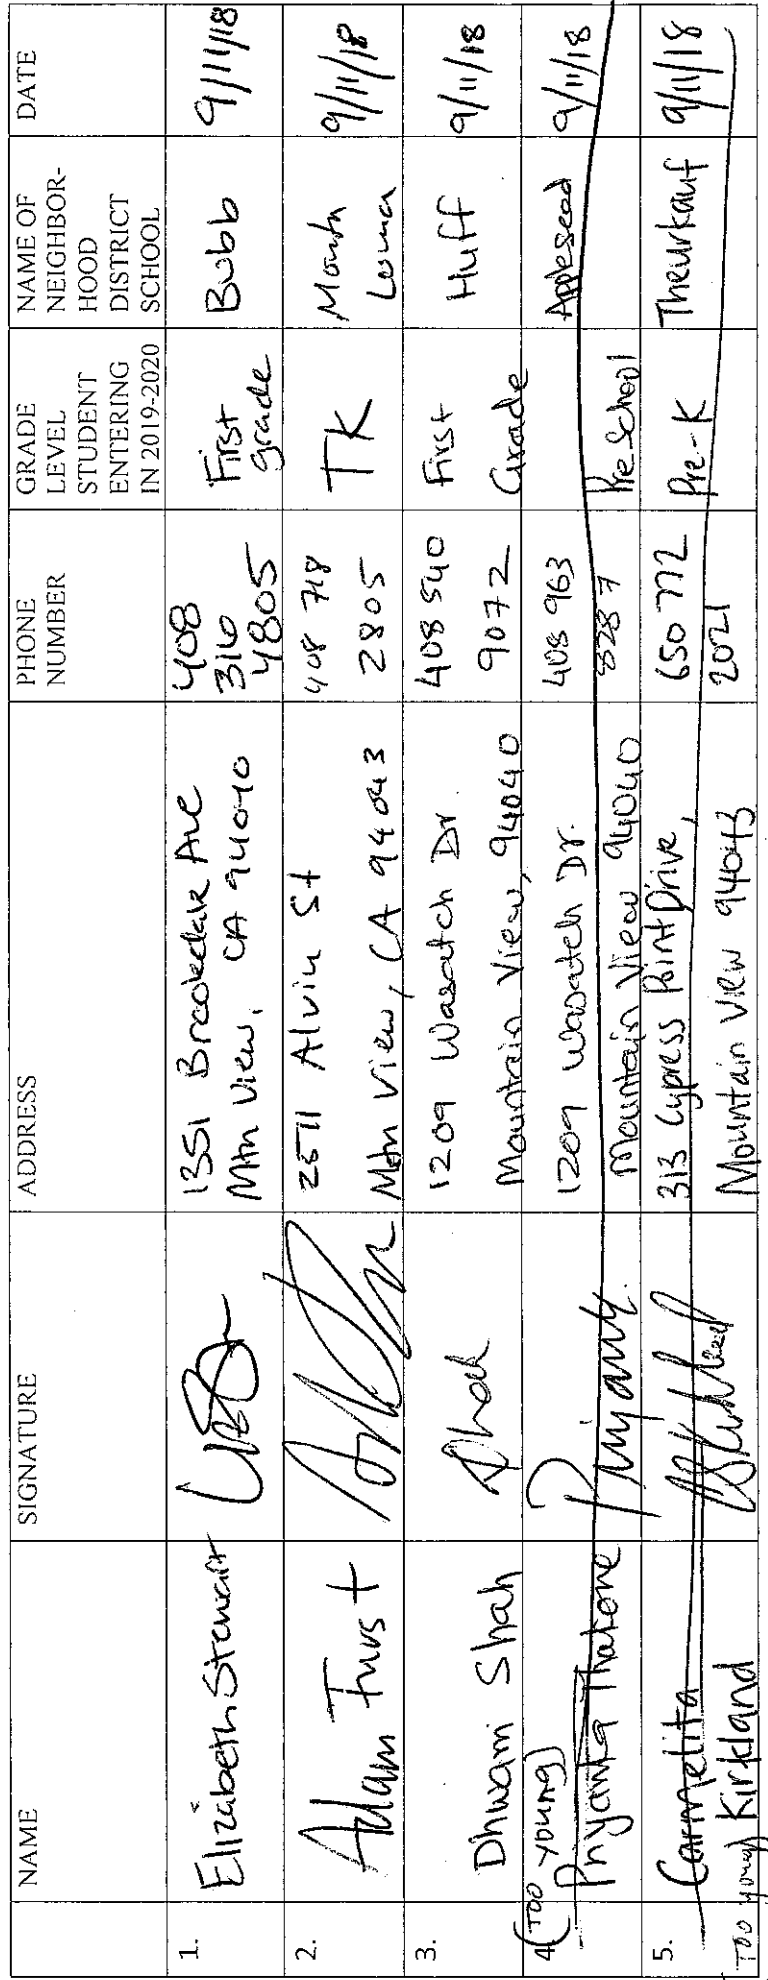 NAME
SIGNATURE
ADDRESS
PHONE
NUMBER
GRADE
LEVEL
STUDENT
ENTERING
IN 2019-2020
NAME OF
NEIGHBOR-
HOOD
DISTRICT
SCHOOL
DATE
1.
Elizabeth Stewart
1351 Brookdale Ave
Mtn View, CA 94040
408
316
4805
First
grade
Bubb
9/11/18
2.
Adam Furst
2511 Alvin St
Mtn View, CA 94043
408 718
2805
TK
Monta
Loma
9/11/18
3.
Dhwani Shah
Shah
1209 Wasatch Dr.
Mountain View, 94040
408 540
9072
First
Grade
Huff
9/11/18
4 (TOO young)
Priyanka Thakore
Priyank.
1209 Wasatch Dr.
Mountain View 94040
408 963
8287
Pre School
Appleseed
9/11/18
5.
Carmelita
TOO young) Kirkland
313 Cypress Point Drive,
Mountain View 94043
650 772
2021
Pre-K
Theurkauf
9/11/18